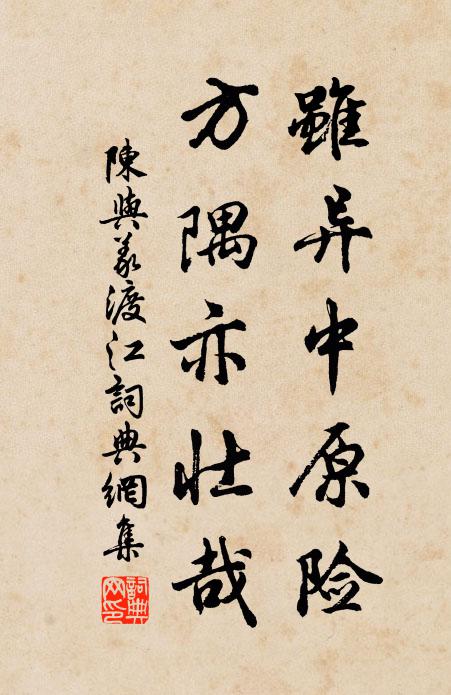 雖异中原险
方隅亦壮哉
陳與義渡江詞典網集
詞典網印